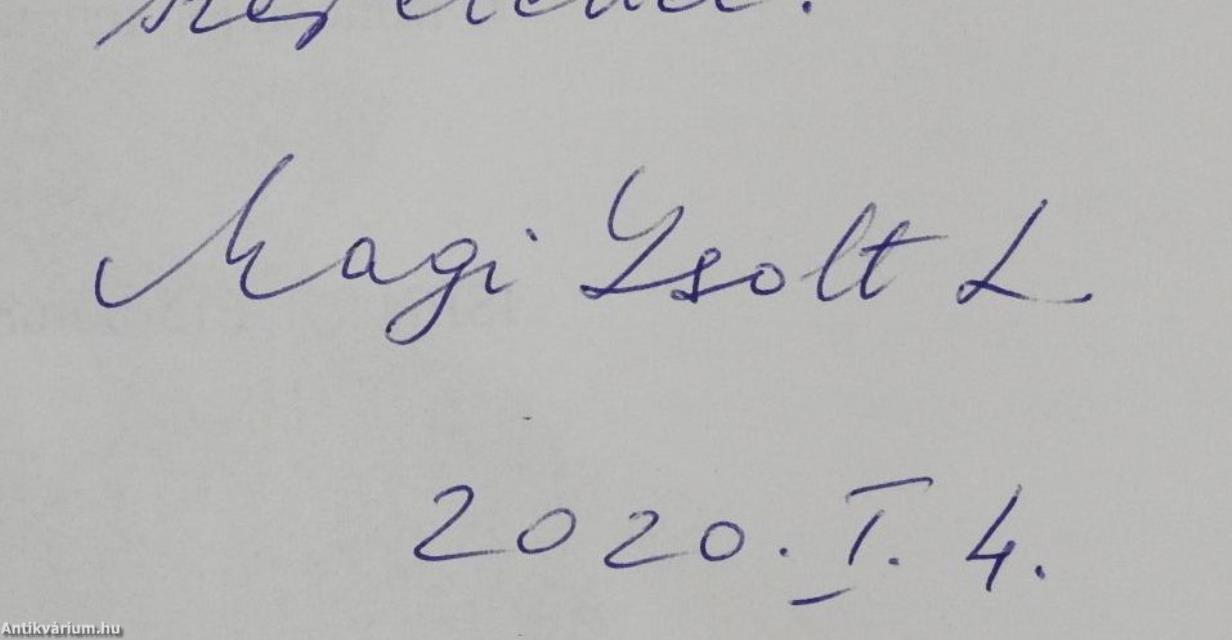 Magi Zsolt L
2020. I. 4.
Antikvárium.hu